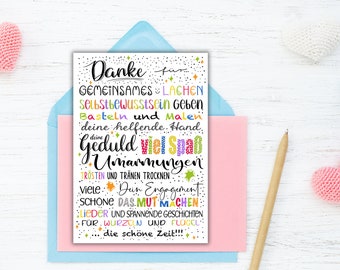 Danke für
GEMEINSAMES LACHEN
SELBSTBEWUSSTSEIN GEBEN
Basteln und Malen
deine helfende Hand
deine
Geduld viel Spaß
Umarmungen
TRÖSTEN UND TRÄNEN TROCKNEN
VIELE Dein Engagement
SCHÖNE DAS MUT MACHEN
LIEDER UND SPANNENDE GESCHICHTEN
FÜR WURZELN UND FLÜGEL
... die schöne Zeit!!!